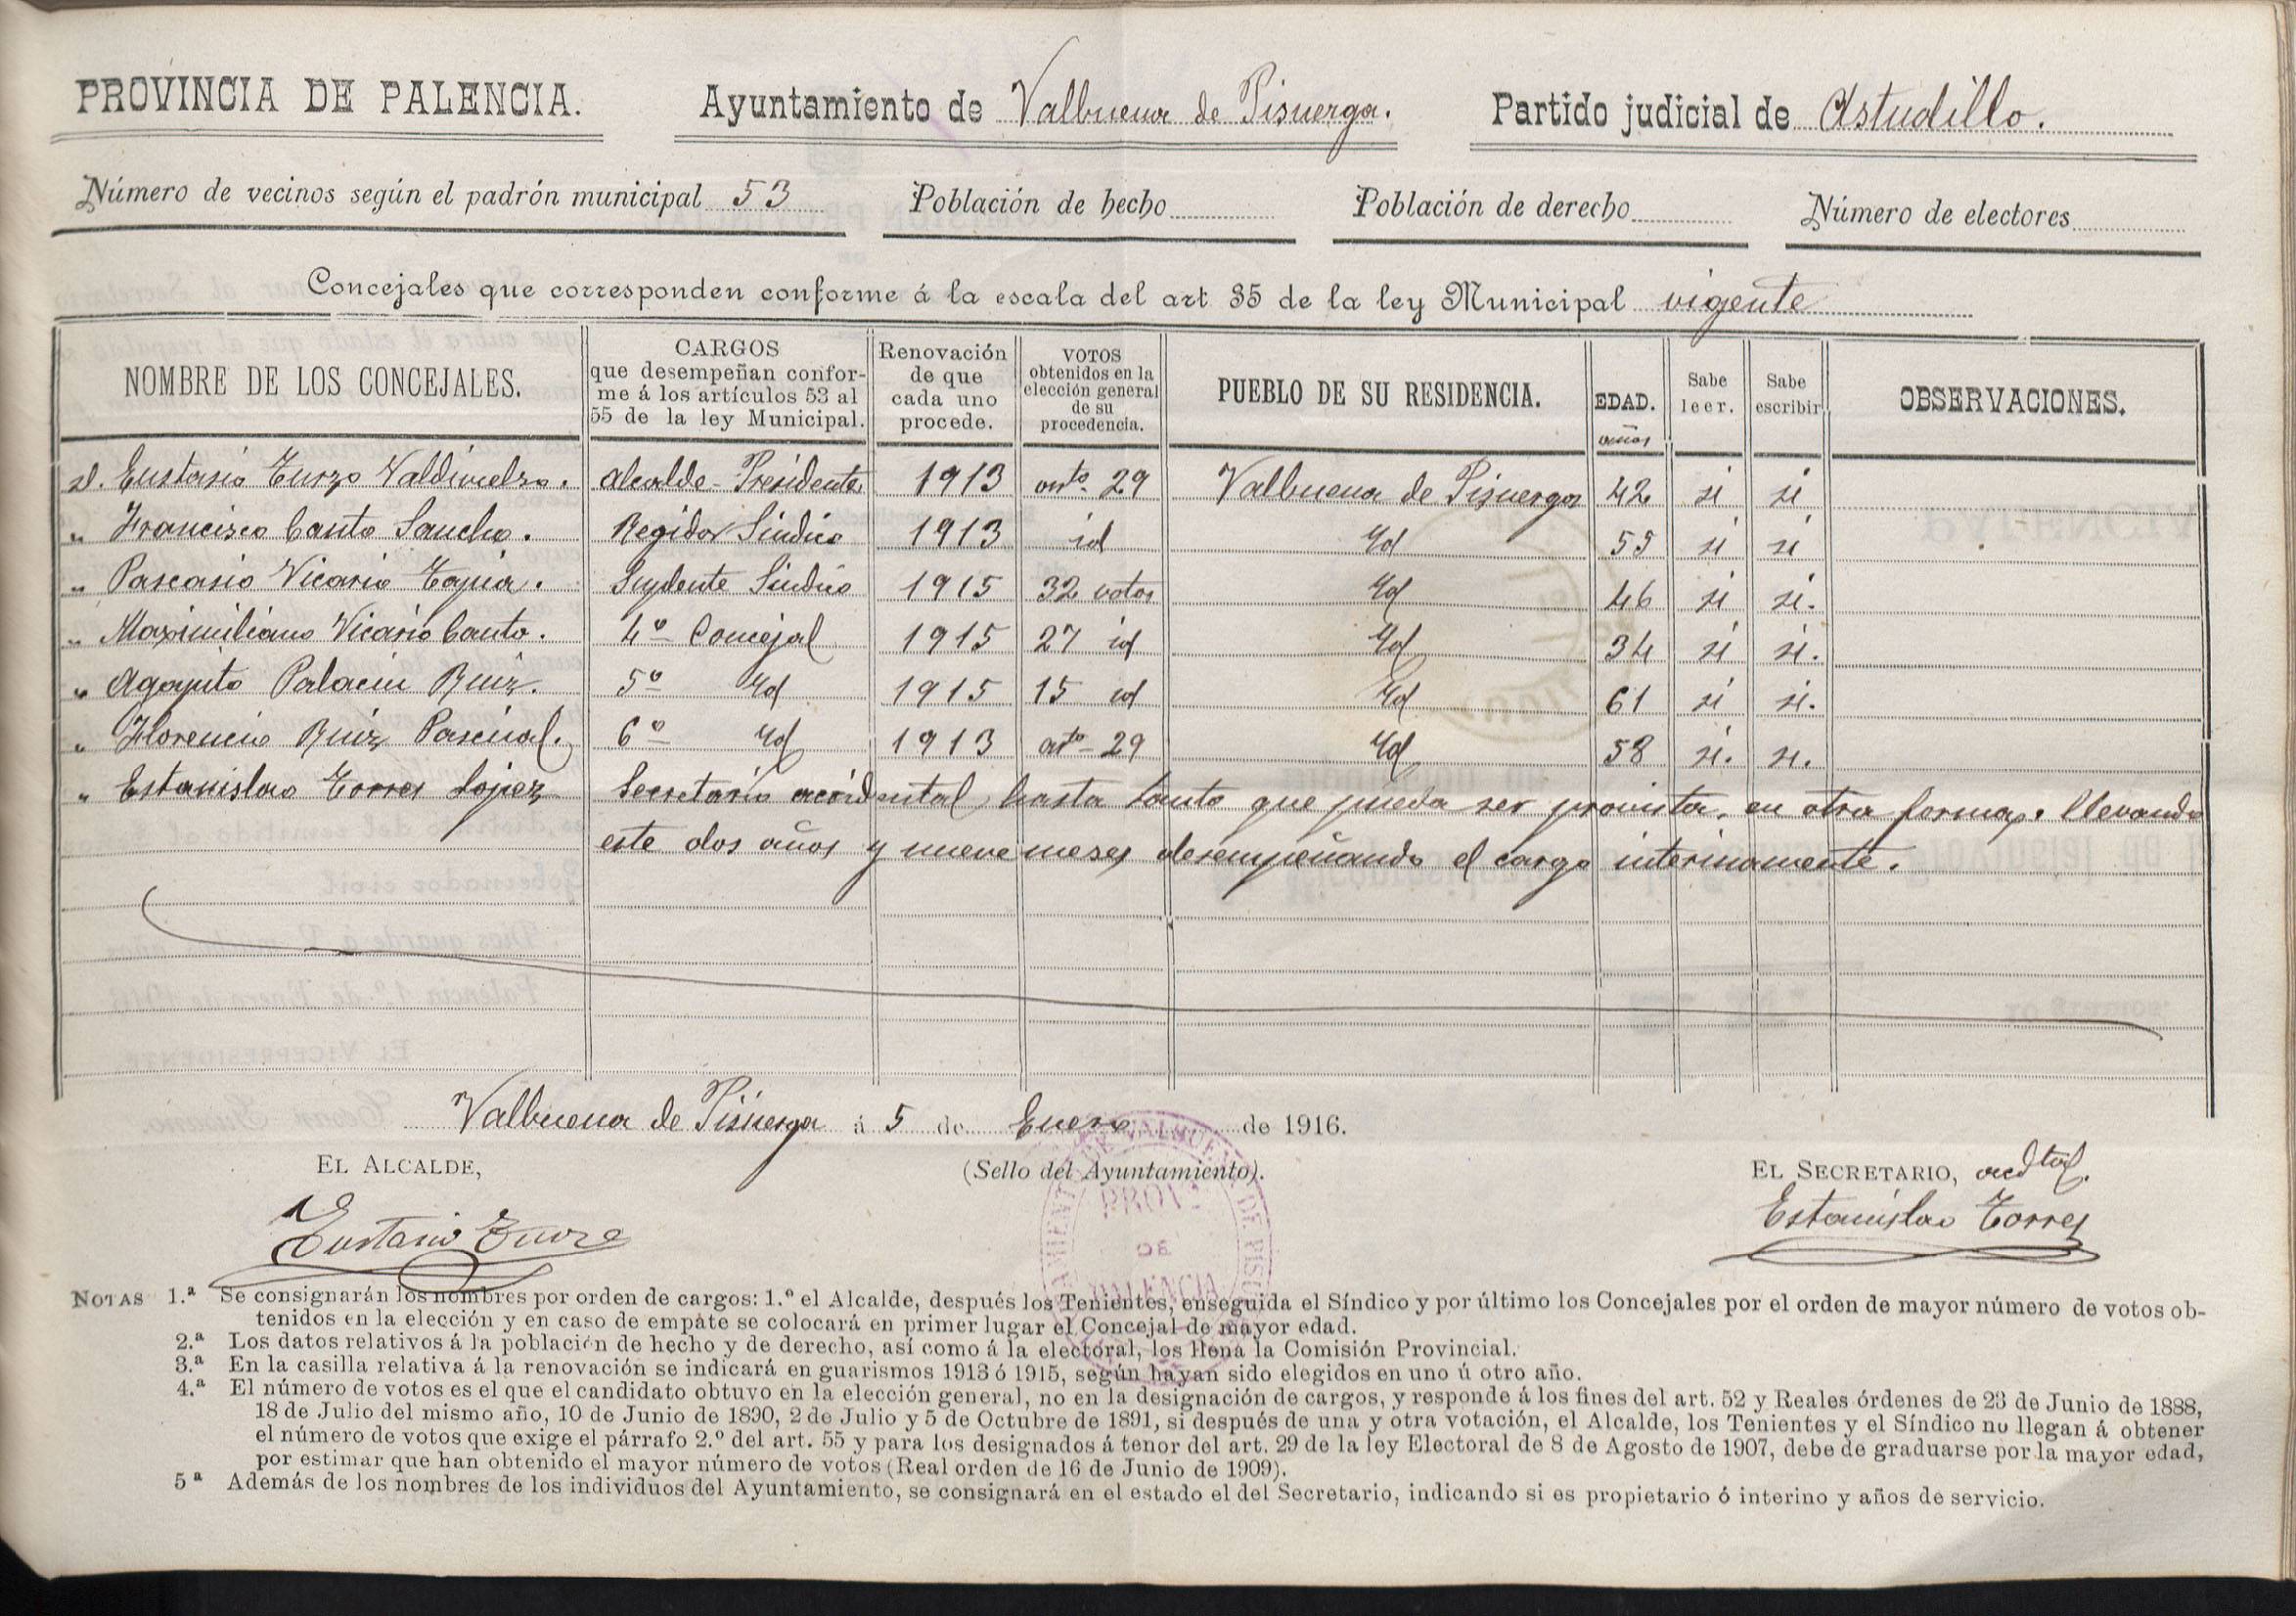 PROVINCIA DE PALENCIA. Ayuntamiento de Valbuena de Pisuerga. Partido judicial de Astudillo.
Número de vecinos según el padrón municipal 53 Población de hecho Población de derecho Número de electores
Concejales que corresponden conforme á la escala del art 35 de la ley Municipal vigente
NOMBRE DE LOS CONCEJALES. CARGOS que desempeñan conforme á los artículos 53 al 55 de la ley Municipal. Renovación de que cada uno procede. VOTOS obtenidos en la elección general de su procedencia. PUEBLO DE SU RESIDENCIA. EDAD. años Sabe leer. Sabe escribir OBSERVACIONES.
D. Eustasio Turzo Valdivielso. Alcalde-Presidente 1913 arto. 29 Valbuena de Pisuerga 42 si si
" Francisco Canto Sancho. Regidor Síndico 1913 id Id 55 si si
" Pascasio Vicario Tapia. Suplente Síndico 1915 32 votos Id 46 si si.
" Maximiliano Vicario Canto. 4º Concejal 1915 27 id Id 34 si si.
" Agapito Palacin Ruiz. 5º Id 1915 15 id Id 61 si si.
" Florencio Ruiz Pascual. 6º Id 1913 arto 29 Id 58 si. si.
" Estanislao Torres López Secretario accidental hasta tanto que pueda ser provista, en otra forma. llevando
este dos años y nueve meses desempeñando el cargo interinamente.
Valbuena de Pisuerga á 5 de Enero de 1916.
EL ALCALDE, (Sello del Ayuntamiento). EL SECRETARIO, acdtal.
Eustasio Turzo Estanislao Torres
PROVª DE PALENCIA
NOTAS 1.ª Se consignarán los nombres por orden de cargos: 1.º el Alcalde, después los Tenientes, enseguida el Síndico y por último los Concejales por el orden de mayor número de votos ob-
tenidos en la elección y en caso de empate se colocará en primer lugar el Concejal de mayor edad.
2.ª Los datos relativos á la población de hecho y de derecho, así como á la electoral, los llena la Comisión Provincial.
3.ª En la casilla relativa á la renovación se indicará en guarismos 1913 ó 1915, según hayan sido elegidos en uno ú otro año.
4.ª El número de votos es el que el candidato obtuvo en la elección general, no en la designación de cargos, y responde á los fines del art. 52 y Reales órdenes de 23 de Junio de 1888,
18 de Julio del mismo año, 10 de Junio de 1890, 2 de Julio y 5 de Octubre de 1891, si después de una y otra votación, el Alcalde, los Tenientes y el Síndico no llegan á obtener
el número de votos que exige el párrafo 2.º del art. 55 y para los designados á tenor del art. 29 de la ley Electoral de 8 de Agosto de 1907, debe de graduarse por la mayor edad,
por estimar que han obtenido el mayor número de votos (Real orden de 16 de Junio de 1909).
5ª Además de los nombres de los individuos del Ayuntamiento, se consignará en el estado el del Secretario, indicando si es propietario ó interino y años de servicio.